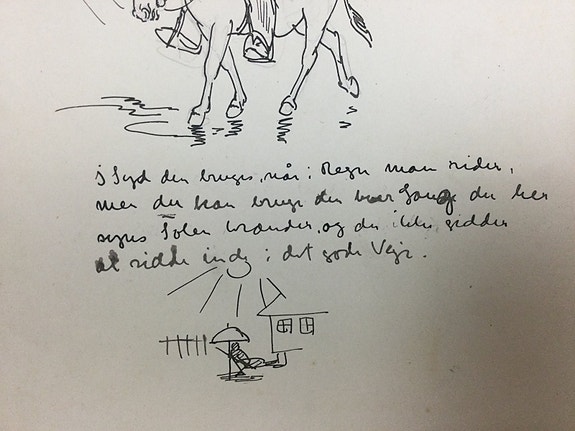 i Syd den bruges, når i Regn man rider,
men du kan bruge den hver Gang du her
synes Solen brænder, og du ikke gidder
at sidde inde i det gode Vejr.